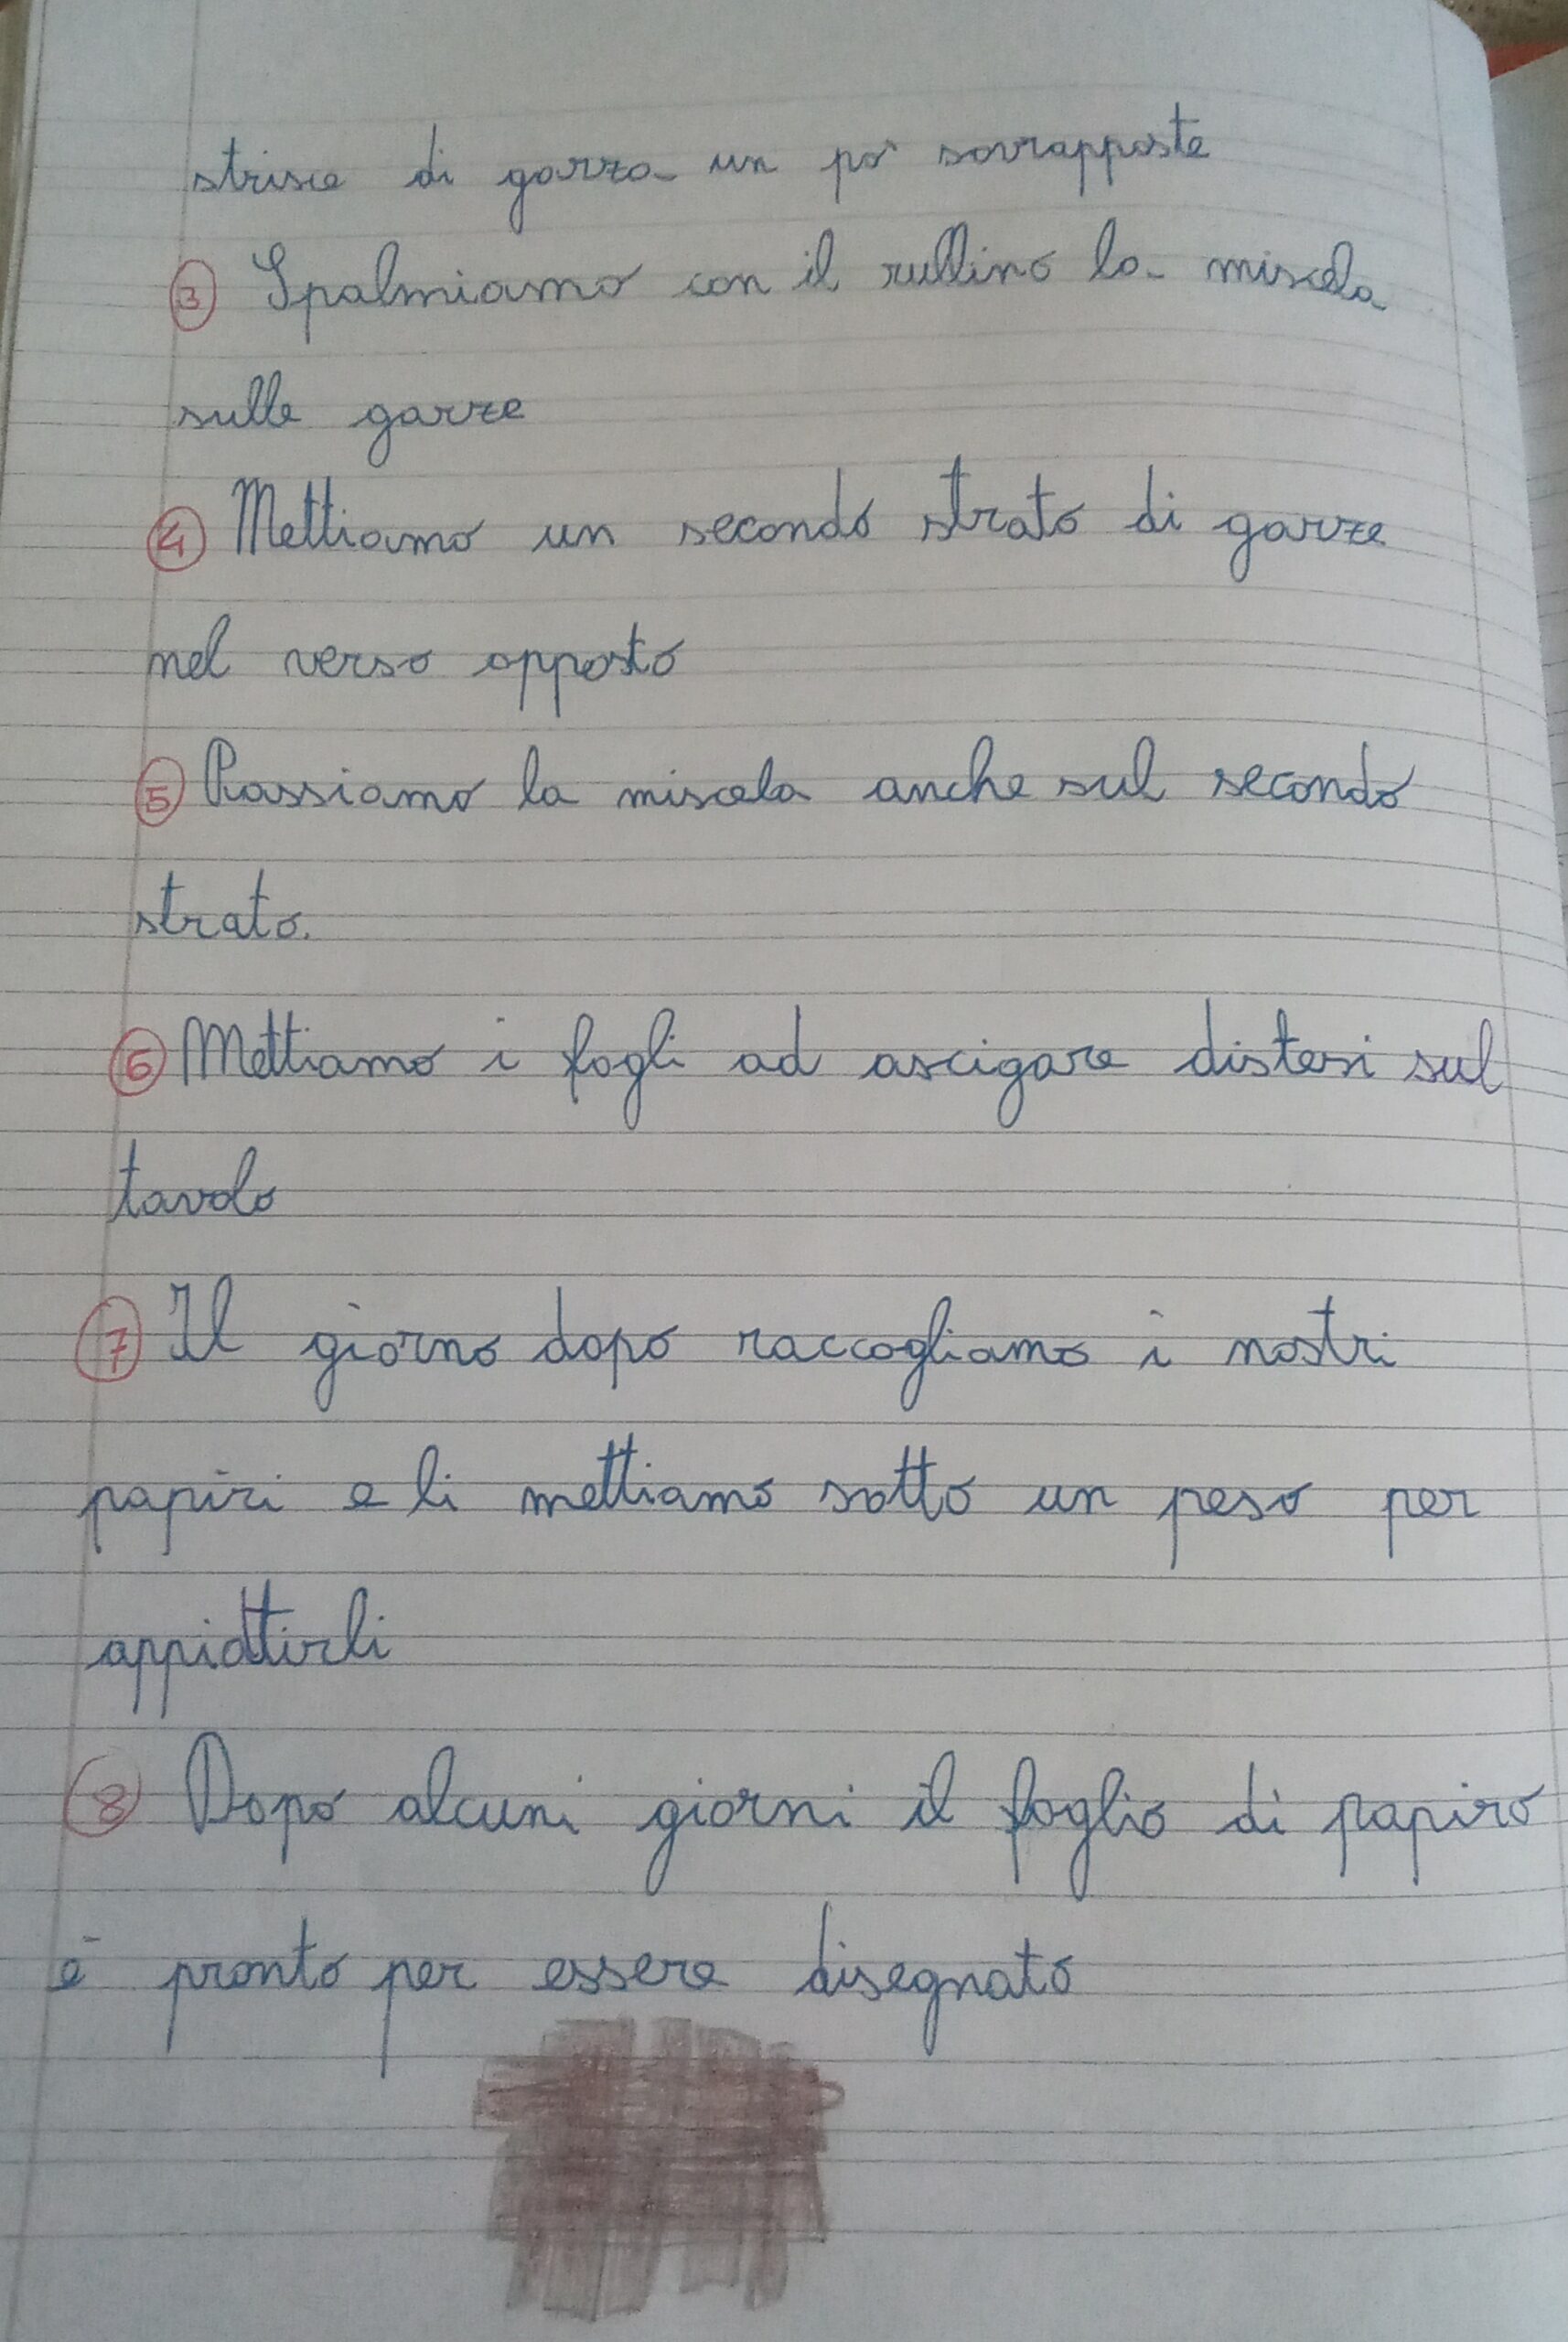 strisce di garza un pò sovrapposte
③ Spalmiamo con il rullino la miscela
sulle garze
④ Mettiamo un secondo strato di garze
nel verso opposto
⑤ Passiamo la miscela anche sul secondo
strato.
⑥ Mettiamo i fogli ad ascigare distesi sul
tavolo
⑦ Il giorno dopo raccogliamo i nostri
papiri e li mettiamo sotto un peso per
appiattirli
⑧ Dopo alcuni giorni il foglio di papiro
è pronto per essere disegnato